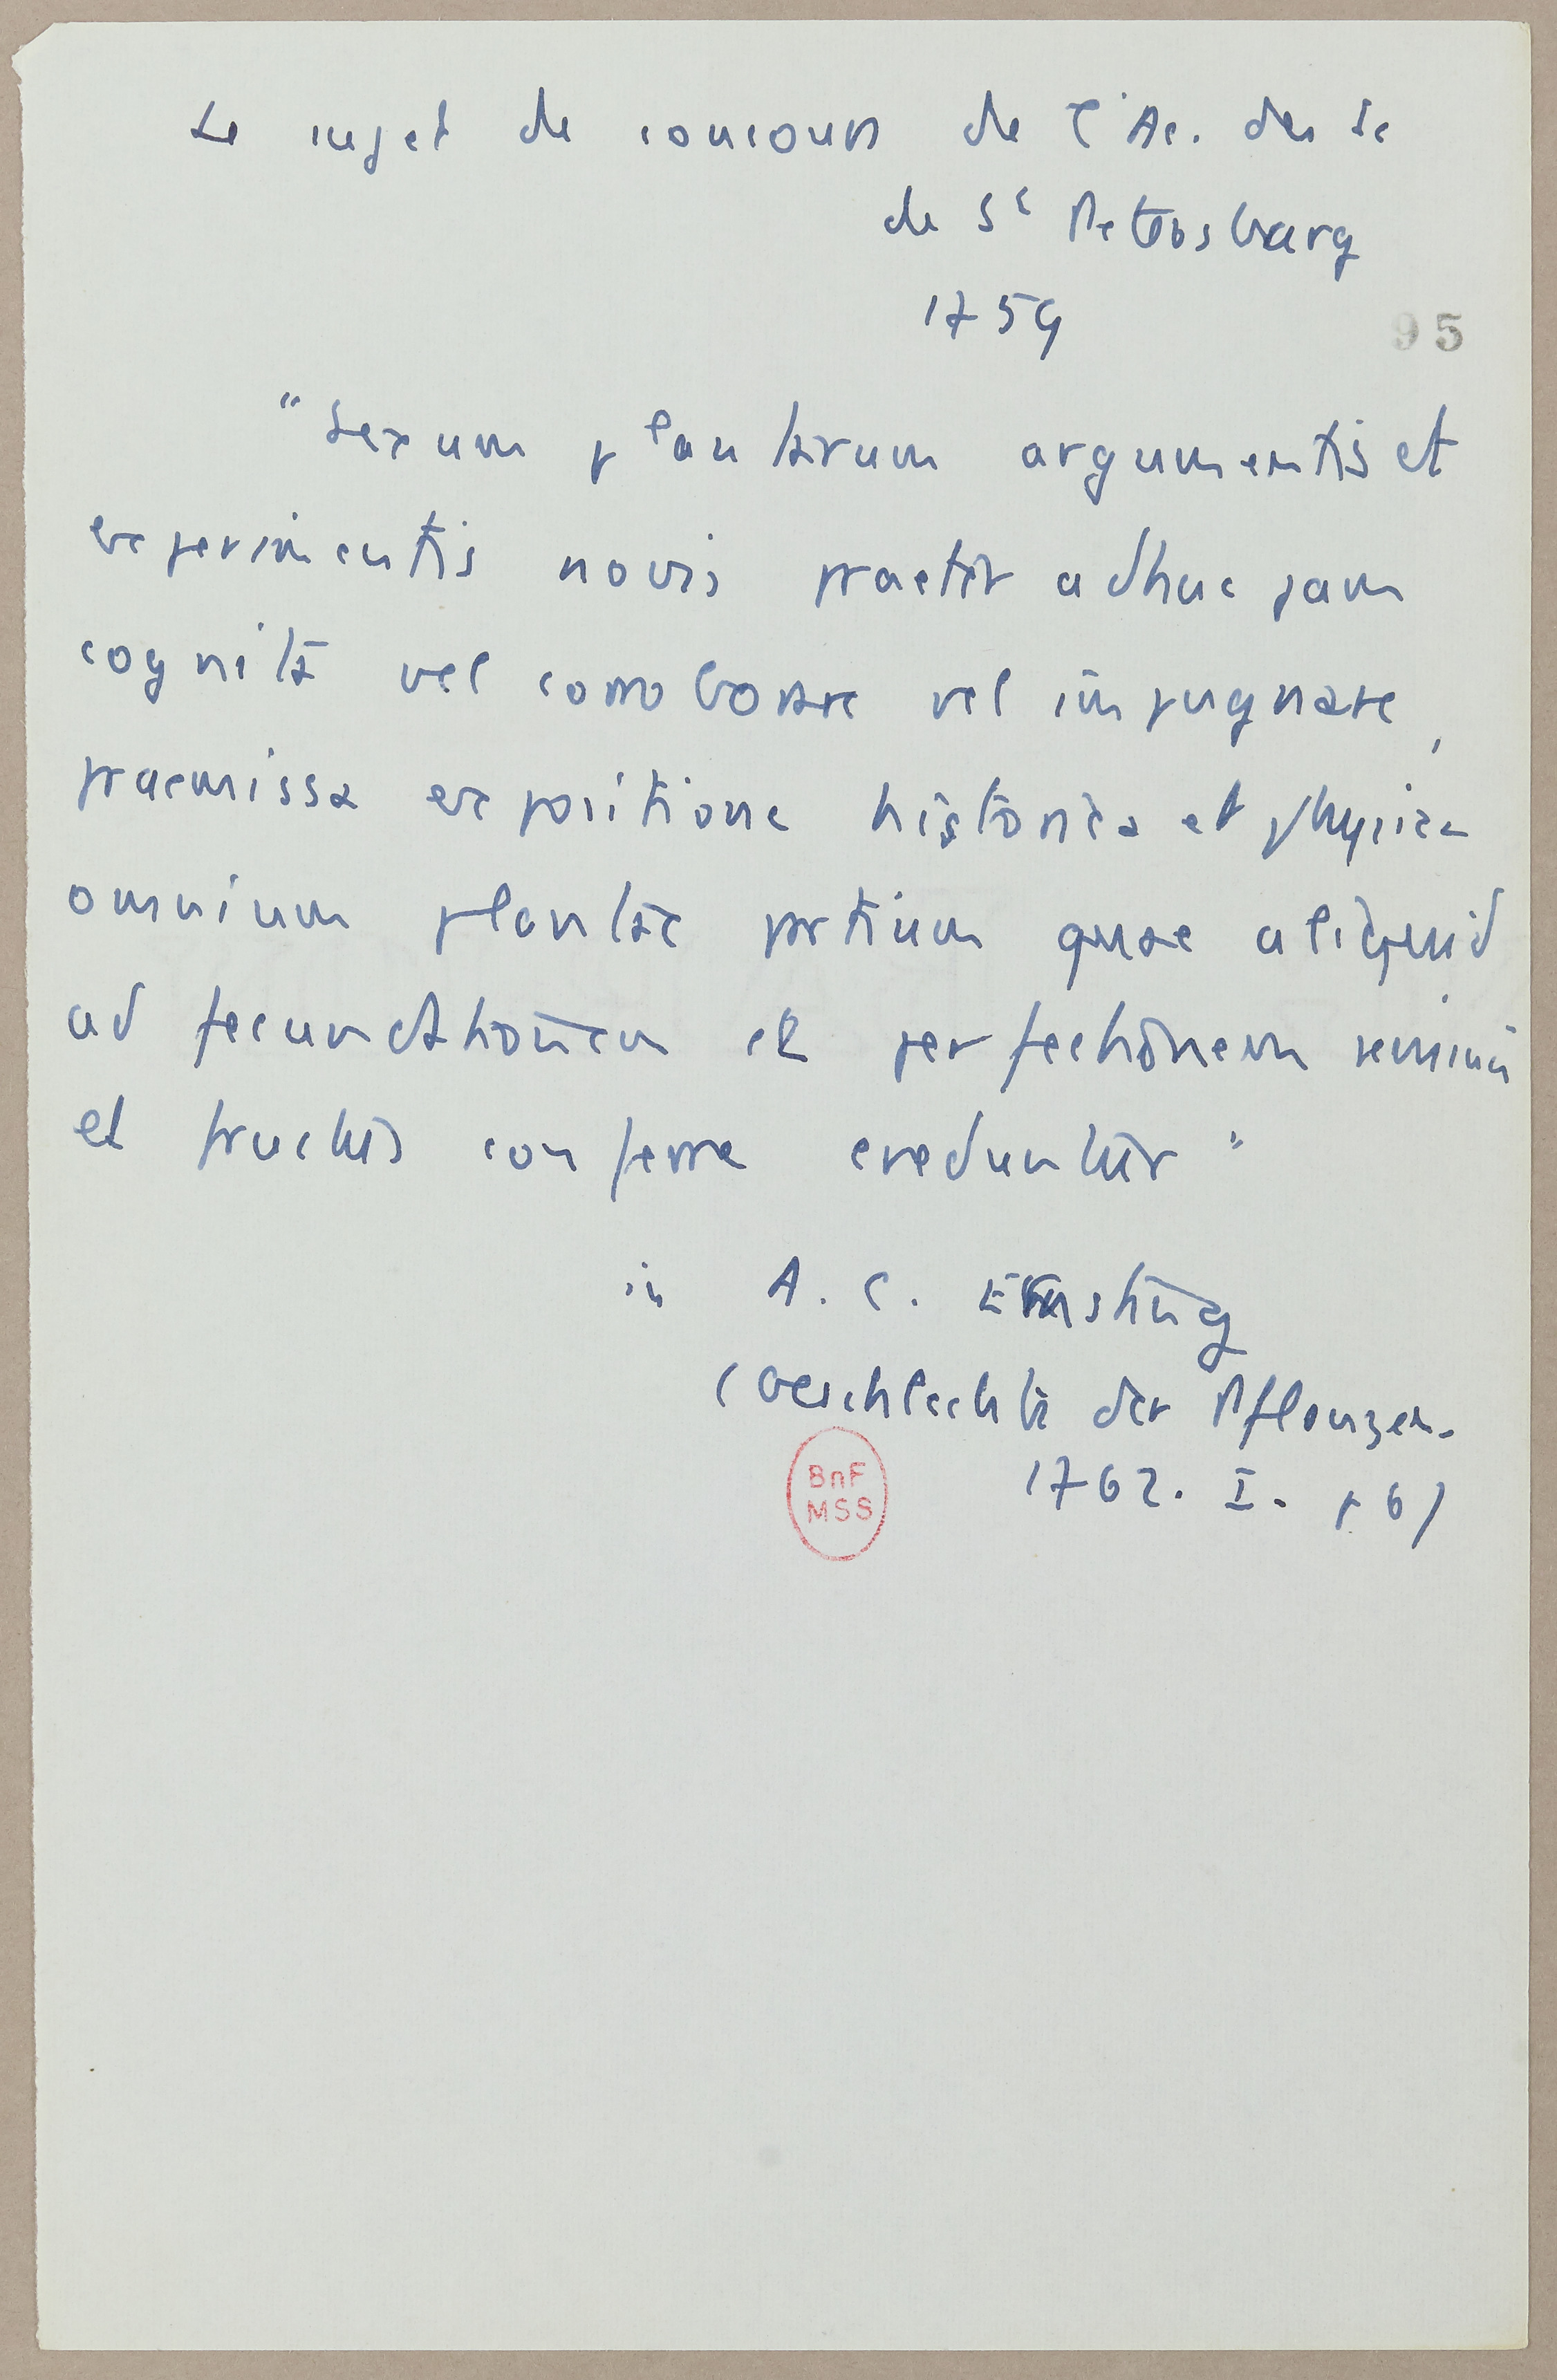 Le sujet de concours de l'Ac. des Sc
de St Petersburg
1759
95
"Sexum plantarum argumentis et
experimentis novis praeter adhuc jam
cognita vel corroborare vel impugnare,
praemissa expositione historica et physica
omnium plantae partium quae aliquid
ad fecundationem et perfectionem seminis
et fructus conferre creduntur"
in A. C. Ernsting
(Geschlecht der Pflanzen.
1762. I. p 6)
BnF
MSS